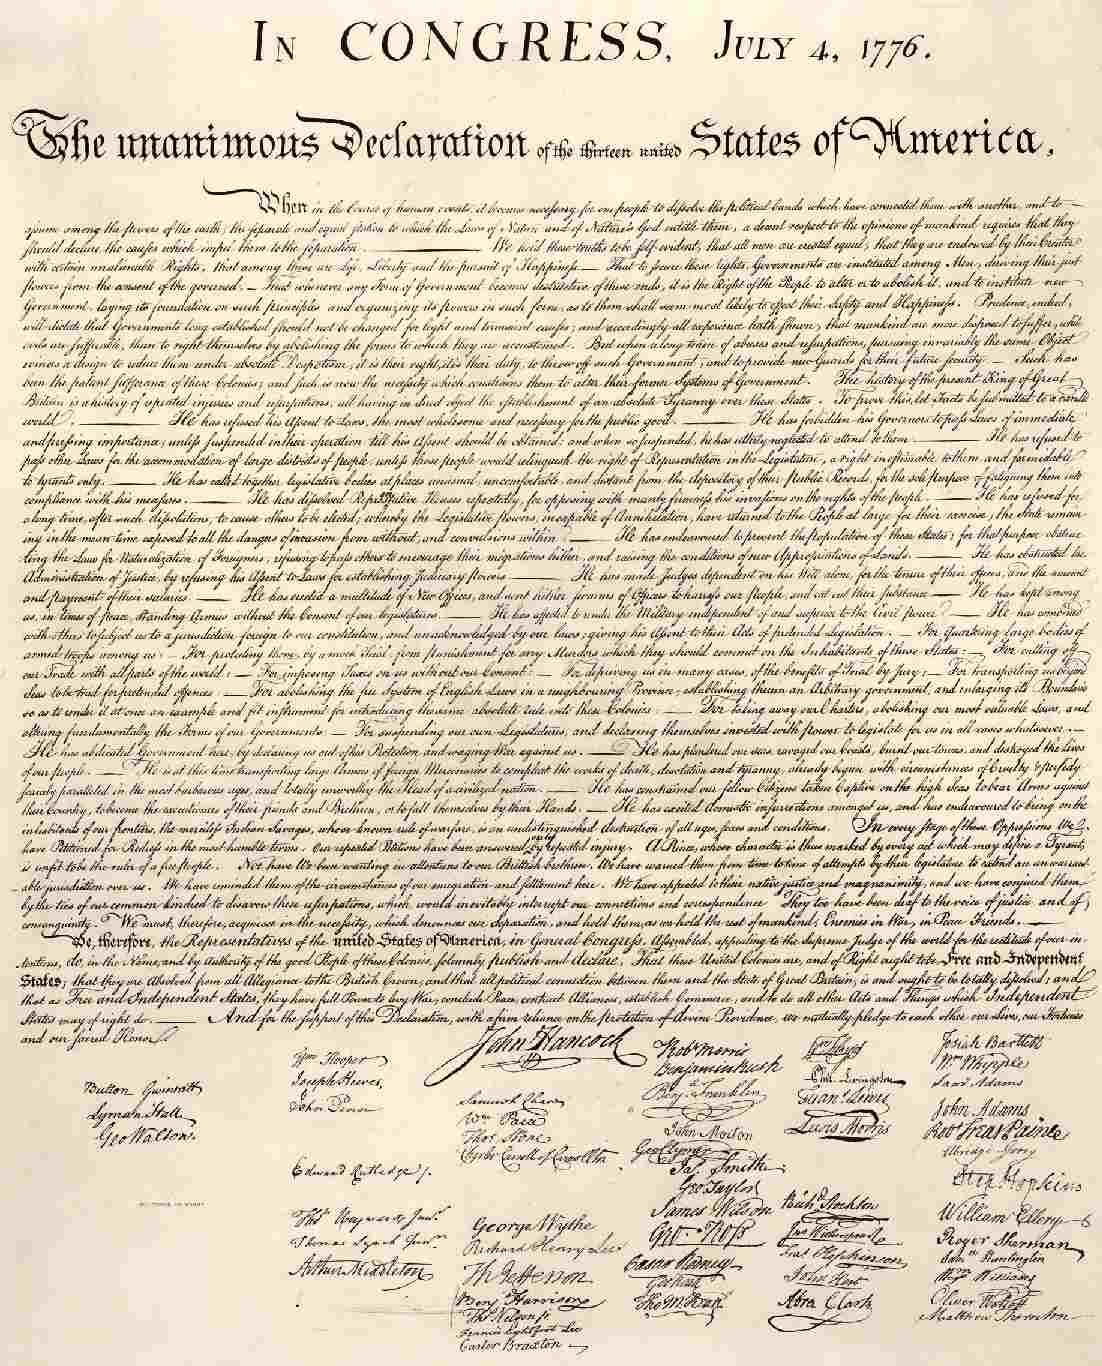 IN CONGRESS, JULY 4, 1776.
The unanimous Declaration of the thirteen united States of America,
When in the Course of human events, it becomes necessary for one people to dissolve the political bands which have connected them with another, and to
assume among the powers of the earth, the separate and equal station to which the Laws of Nature and of Nature's God entitle them, a decent respect to the opinions of mankind requires that they
should declare the causes which impel them to the separation. — We hold these truths to be self-evident, that all men are created equal, that they are endowed by their Creator
with certain unalienable Rights, that among these are Life, Liberty and the pursuit of Happiness. — That to secure these rights, Governments are instituted among Men, deriving their just
powers from the consent of the governed, — That whenever any Form of Government becomes destructive of these ends, it is the Right of the People to alter or to abolish it, and to institute new
Government, laying its foundation on such principles and organizing its powers in such form, as to them shall seem most likely to effect their Safety and Happiness. Prudence, indeed,
will dictate that Governments long established should not be changed for light and transient causes; and accordingly all experience hath shewn, that mankind are more disposed to suffer, while
evils are sufferable, than to right themselves by abolishing the forms to which they are accustomed. But when a long train of abuses and usurpations, pursuing invariably the same Object
evinces a design to reduce them under absolute Despotism, it is their right, it is their duty, to throw off such Government, and to provide new Guards for their future security. — Such has
been the patient sufferance of these Colonies; and such is now the necessity which constrains them to alter their former Systems of Government. The history of the present King of Great
Britain is a history of repeated injuries and usurpations, all having in direct object the establishment of an absolute Tyranny over these States. To prove this, let Facts be submitted to a candid
world. — He has refused his Assent to Laws, the most wholesome and necessary for the public good. — He has forbidden his Governors to pass Laws of immediate
and pressing importance, unless suspended in their operation till his Assent should be obtained; and when so suspended, he has utterly neglected to attend to them. — He has refused to
pass other Laws for the accommodation of large districts of people, unless those people would relinquish the right of Representation in the Legislature, a right inestimable to them and formidable
to tyrants only. — He has called together legislative bodies at places unusual, uncomfortable, and distant from the depository of their Public Records, for the sole purpose of fatiguing them into
compliance with his measures. — He has dissolved Representative Houses repeatedly, for opposing with manly firmness his invasions on the rights of the people. — He has refused for
a long time, after such dissolutions, to cause others to be elected; whereby the Legislative powers, incapable of Annihilation, have returned to the People at large for their exercise; the State remain-
ing in the mean time exposed to all the dangers of invasion from without, and convulsions within. — He has endeavoured to prevent the population of these States; for that purpose obstruc-
ting the Laws for Naturalization of Foreigners; refusing to pass others to encourage their migrations hither, and raising the conditions of new Appropriations of Lands. — He has obstructed the
Administration of Justice, by refusing his Assent to Laws for establishing Judiciary powers. — He has made Judges dependent on his Will alone, for the tenure of their offices, and the amount
and payment of their salaries. — He has erected a multitude of New Offices, and sent hither swarms of Officers to harrass our people, and eat out their substance. — He has kept among
us, in times of peace, Standing Armies without the Consent of our legislatures. — He has affected to render the Military independent of and superior to the Civil power. — He has combined
with others to subject us to a jurisdiction foreign to our constitution, and unacknowledged by our laws; giving his Assent to their Acts of pretended Legislation: — For Quartering large bodies of
armed troops among us: — For protecting them, by a mock Trial, from punishment for any Murders which they should commit on the Inhabitants of these States: — For cutting off
our Trade with all parts of the world: — For imposing Taxes on us without our Consent: — For depriving us in many cases, of the benefits of Trial by Jury: — For transporting us beyond
Seas to be tried for pretended offences: — For abolishing the free System of English Laws in a neighbouring Province, establishing therein an Arbitrary government, and enlarging its Boundaries
so as to render it at once an example and fit instrument for introducing the same absolute rule into these Colonies: — For taking away our Charters, abolishing our most valuable Laws, and
altering fundamentally the Forms of our Governments: — For suspending our own Legislatures, and declaring themselves invested with power to legislate for us in all cases whatsoever. —
He has abdicated Government here, by declaring us out of his Protection and waging War against us. — He has plundered our seas, ravaged our Coasts, burnt our towns, and destroyed the lives
of our people. — He is at this time transporting large Armies of foreign Mercenaries to compleat the works of death, desolation and tyranny, already begun with circumstances of Cruelty & perfidy
scarcely paralleled in the most barbarous ages, and totally unworthy the Head of a civilized nation. — He has constrained our fellow Citizens taken Captive on the high Seas to bear Arms against
their Country, to become the executioners of their friends and Brethren, or to fall themselves by their Hands. — He has excited domestic insurrections amongst us, and has endeavoured to bring on the
inhabitants of our frontiers, the merciless Indian Savages, whose known rule of warfare, is an undistinguished destruction of all ages, sexes and conditions. In every stage of these Oppressions We
have Petitioned for Redress in the most humble terms: Our repeated Petitions have been answered only by repeated injury. A Prince, whose character is thus marked by every act which may define a Tyrant,
is unfit to be the ruler of a free people. Nor have We been wanting in attentions to our Brittish brethren. We have warned them from time to time of attempts by their legislature to extend an unwarrant-
able jurisdiction over us. We have reminded them of the circumstances of our emigration and settlement here. We have appealed to their native justice and magnanimity, and we have conjured them
by the ties of our common kindred to disavow these usurpations, which, would inevitably interrupt our connections and correspondence. They too have been deaf to the voice of justice and of
consanguinity. We must, therefore, acquiesce in the necessity, which denounces our Separation, and hold them, as we hold the rest of mankind, Enemies in War, in Peace Friends. —
We, therefore, the Representatives of the united States of America, in General Congress, Assembled, appealing to the Supreme Judge of the world for the rectitude of our in-
tentions, do, in the Name, and by Authority of the good People of these Colonies, solemnly publish and declare, That these United Colonies are, and of Right ought to be Free and Independent
States; that they are Absolved from all Allegiance to the British Crown, and that all political connection between them and the State of Great Britain, is and ought to be totally dissolved; and
that as Free and Independent States, they have full Power to levy War, conclude Peace, contract Alliances, establish Commerce, and to do all other Acts and Things which Independent
States may of right do. — And for the support of this Declaration, with a firm reliance on the protection of divine Providence, we mutually pledge to each other our Lives, our Fortunes
and our sacred Honor.
Button Gwinnett
Lyman Hall
Geo Walton.
Wm Hooper
Joseph Hewes,
John Penn
Edward Rutledge /.
Thos Heyward Junr.
Thomas Lynch Junr.
Arthur Middleton
John Hancock
Samuel Chase
Wm Paca
Thos Stone
Charles Carroll of Carrollton
George Wythe
Richard Henry Lee
Th Jefferson
Benj Harrison
Thos Nelson jr.
Francis Lightfoot Lee
Carter Braxton
Robt Morris
Benjamin Rush
Benj. Franklin
John Morton
Geo Clymer
Jas. Smith
Geo. Taylor
James Wilson
Geo. Ross
Caesar Rodney
Geo Read
Tho M:Kean
Wm Floyd
Phil. Livingston
Frans. Lewis
Lewis Morris
Richd. Stockton
Jno Witherspoon
Fras. Hopkinson
John Hart
Abra Clark
Josiah Bartlett
Wm Whipple
Saml Adams
John Adams
Robt Treat Paine
Elbridge Gerry
Step. Hopkins
William Ellery
Roger Sherman
Saml Huntington
Wm Williams
Oliver Wolcott
Matthew Thornton